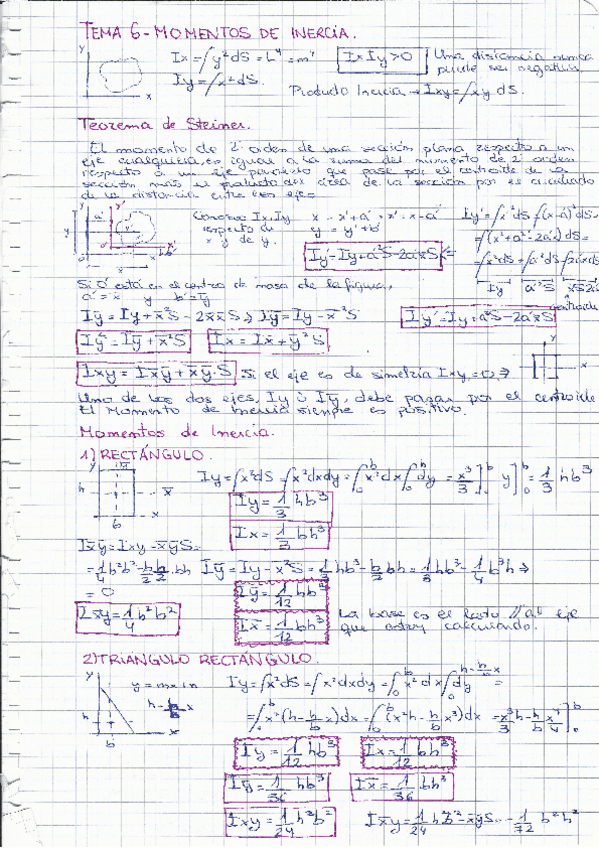 TEMA 6 - MOMENTOS DE INERCIA.
Ix = ∫y²dS = L⁴ = m⁴
Iy = ∫x²dS.
Ix Iy > 0
Una distancia nunca puede ser negativa
Producto Inercia → Ixy = ∫xy dS.
Teorema de Steiner.
El momento de 2º orden de una sección plana respecto a un
eje cualquiera, es igual a la suma del momento de 2º orden
respecto a un eje paralelo que pase por el centroide de la
sección más el producto del área de la sección por el cuadrado
de la distancia entre los ejes
Conozco Ix, Iy
respecto de
x y de y.
x = x' + a' → x' = x - a'
y = y' + b'
Iy' = ∫x'²dS = ∫(x-a')²dS =
= ∫(x² + a'² - 2a'x)dS =
Iy' = Iy + a'²S - 2a'x̄S
Si O' está en el centro de masa de la figura,
a' = x̄ y b' = ȳ
Iȳ = Iy + x̄²S - 2x̄x̄S ⇒ Iȳ = Iy - x̄²S
Iy' - Iy = a'²S - 2a'x̄S
Iy = Iȳ + x̄²S
Ix = Ix̄ + ȳ²S
Ixy = Ix̄ȳ + x̄ȳ·S
Si el eje es de simetría Ixy = 0 ⇒
Uno de los dos ejes, Iy o Iȳ, debe pasar por el centroide
El Momento de Inercia siempre es positivo.
Momentos de Inercia.
1) RECTÁNGULO.
Iy = ∫x²dS = ∫x²dxdy = ∫₀ᵇx²dx∫₀ʰdy = x³/3]₀ᵇ y]₀ʰ = 1/3 hb³
Iy = 1/3 hb³
Ix = 1/3 bh³
Ix̄ȳ = Ixy - x̄ȳS =
= 1/4 h²b² - b/2 h/2 · bh
= 0
Iȳ = Iy - x̄²S = 1/3 hb³ - b/2 bh = 1/3 hb³ - 1/4 b³h ⇒
Iȳ = 1/12 hb³
Ixy = 1/4 b²h²
Ix̄ = 1/12 bh³
La base es el lado // al eje
que estoy calculando.
2) TRIÁNGULO RECTÁNGULO.
y = mx + n
h - h/b x
Iy = ∫x²dS = ∫x²dxdy = ∫₀ᵇx²dx∫₀^(h - h/b x)dy =
= ∫₀ᵇx²(h - h/b x)dx = ∫₀ᵇ(x²h - h/b x³)dx = x³/3 h - h/b x⁴/4]₀ᵇ
Iy = 1/12 hb³
Ix = 1/12 bh³
Iȳ = 1/36 hb³
Ix̄ = 1/36 bh³
Ixy = 1/24 h²b²
Ix̄ȳ = 1/24 h²b² - x̄ȳS = -1/72 b²h²